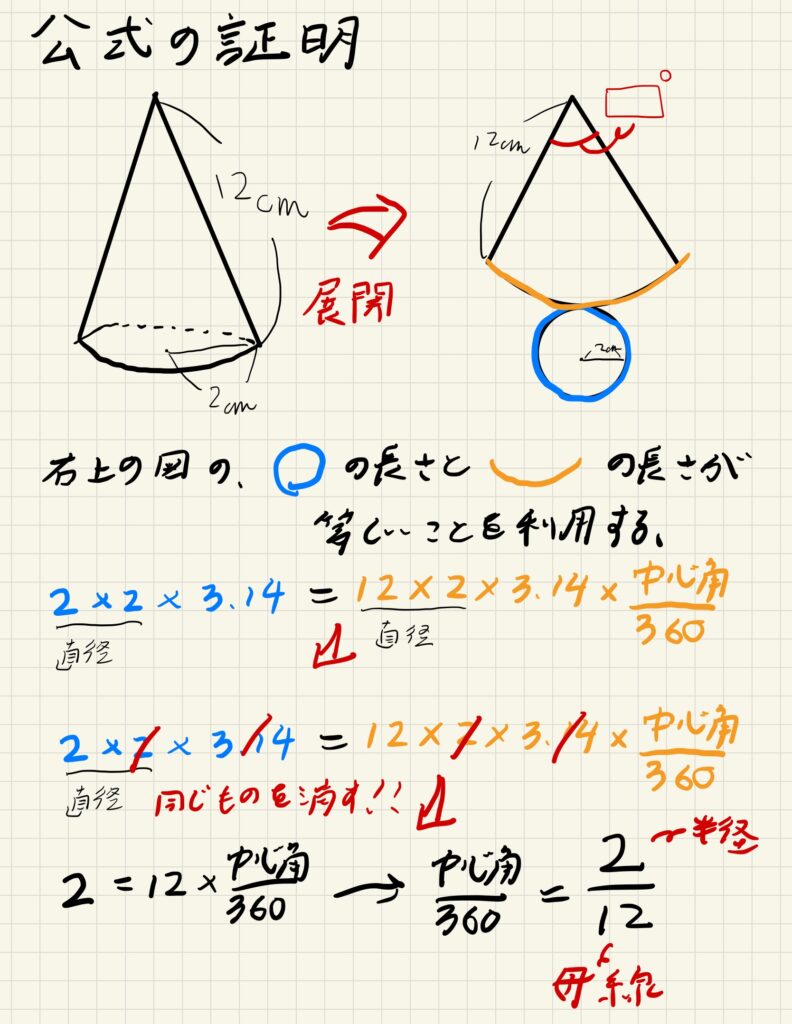 公式の証明
12cm
2cm
展開
12cm
°
2cm
右上の図の、 の長さと の長さが
等しいことを利用する、
2×2×3.14 = 12×2×3.14×中心角/360
直径 直径
2×2×3.14 = 12×2×3.14×中心角/360
直径 同じものを消す!!
2=12×中心角/360 → 中心角/360 = 2/12
半径
母線